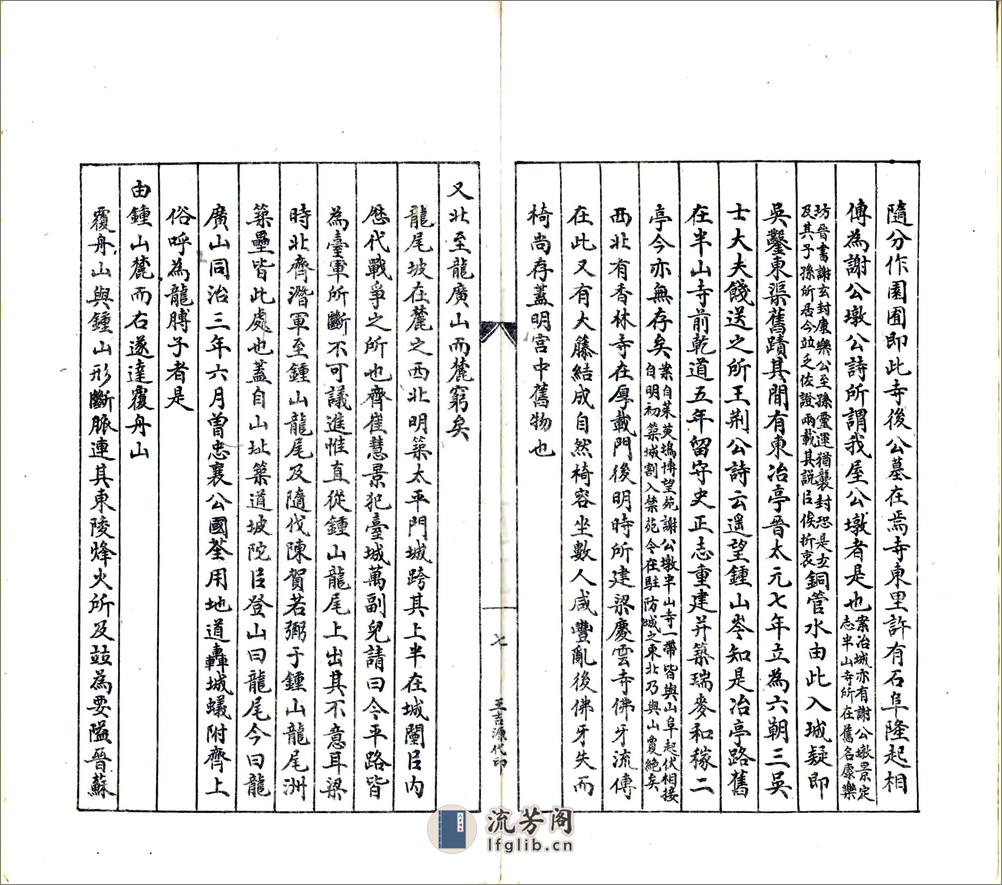 隨分作園囿即此寺後公墓在焉寺東里許有石阜隆起相
傳為謝公墩公詩所謂我屋公墩者是也案冶城亦有謝公墩景定志半山寺所在舊名康樂
坊晉書謝玄封康樂公至孫靈運猶襲封恐是玄及其子孫所居今竝乏佐證兩載其説㠯俟折衷銅管水由此入城疑即
吳鑿東渠舊蹟其間有東冶亭晉太元七年立為六朝三吳
士大夫餞送之所王荆公詩云遥望鍾山岑知是冶亭路舊
在半山寺前乾道五年留守史正志重建并築瑞麥和稼二
亭今亦無存矣案自茱萸塢博望苑謝公墩半山寺一帶皆與山阜起伏相接自明初築城割入禁苑今在駐防城之東北乃與山夐絶矣
西北有香林寺在厚載門後明時所建梁慶雲寺佛牙流傳
在此又有大籐結成自然椅容坐數人咸豐亂後佛牙失而
椅尚存蓋明宫中舊物也
七
王吉源代印
又北至龍廣山而麓窮矣
龍尾坡在麓之西北明築太平門城跨其上半在城闉㠯内
歴代戰爭之所也齊崔慧景犯臺城萬副兒請曰今平路皆
為臺軍所斷不可議進惟直從鍾山龍尾上出其不意耳梁
時北齊潛軍至鍾山龍尾及隨伐陳賀若弼于鍾山龍尾洲
築壘皆此處也蓋自山址築道坡陀㠯登山曰龍尾今曰龍
廣山同治三年六月曾忠襄公國荃用地道轟城蟻附齊上
俗呼為龍膊子者是
由鍾山麓而右遂達覆舟山
覆舟山與鍾山形斷脈連其東陵烽火所及竝為要隘晉蘇
流芳阁
lfglib.cn